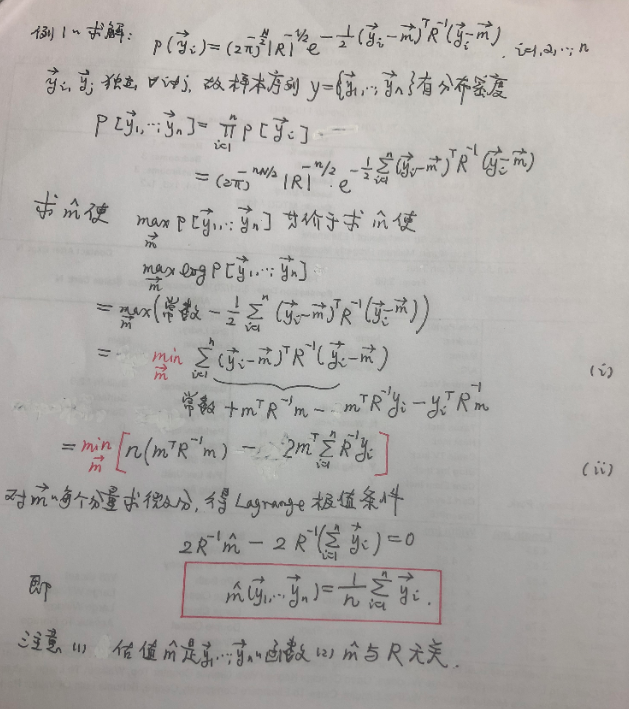 例1～求解: p(\vec{y}_i) = (2π)^{-\frac{N}{2}} |R|^{-1/2} e^{-\frac{1}{2}(\vec{y}_i-\vec{m})^T R^{-1}(\vec{y}_i-\vec{m})}. i=1,2,…,n
\vec{y}_i, \vec{y}_j 独立 ∀ i≠j, 故样本序列 y={\vec{y}_1,…,\vec{y}_n}有分布密度
P[\vec{y}_1,…,\vec{y}_n] = \prod_{i=1}^{n} P[\vec{y}_i]
= (2π)^{-nN/2} |R|^{-n/2} · e^{-\frac{1}{2}\sum_{i=1}^{n}(\vec{y}_i-\vec{m})^T R^{-1}(\vec{y}_i-\vec{m})}
求 \hat{m} 使 \max_{\vec{m}} P[\vec{y}_1,…,\vec{y}_n] 等价于求 \hat{m} 使
\max_{\vec{m}} log P[\vec{y}_1,…,\vec{y}_n]
= \max_{\vec{m}} (常数 - \frac{1}{2}\sum_{i=1}^{n} (\vec{y}_i-\vec{m})^T R^{-1}(\vec{y}_i-\vec{m}))
= \min_{\vec{m}} \sum_{i=1}^{n} (\vec{y}_i-\vec{m})^T R^{-1}(\vec{y}_i-\vec{m}) (i)
常数 + m^T R^{-1} m - m^T R^{-1} y_i - y_i^T R^{-1} m
= \min_{\vec{m}} [n(m^T R^{-1} m) - 2m^T \sum_{i=1}^{n} R^{-1} y_i] (ii)
对 \vec{m}～每个分量求微分, 得 Lagrange 极值条件
2R^{-1}\hat{m} - 2R^{-1}(\sum_{i=1}^{n} \vec{y}_i) = 0
即 \hat{m}(\vec{y}_1,…\vec{y}_n) = \frac{1}{n}\sum_{i=1}^{n} \vec{y}_i.
注意 (1) 估值 \hat{m} 是 \vec{y}_1,…,\vec{y}_n～函数 (2) \hat{m} 与 R 无关.